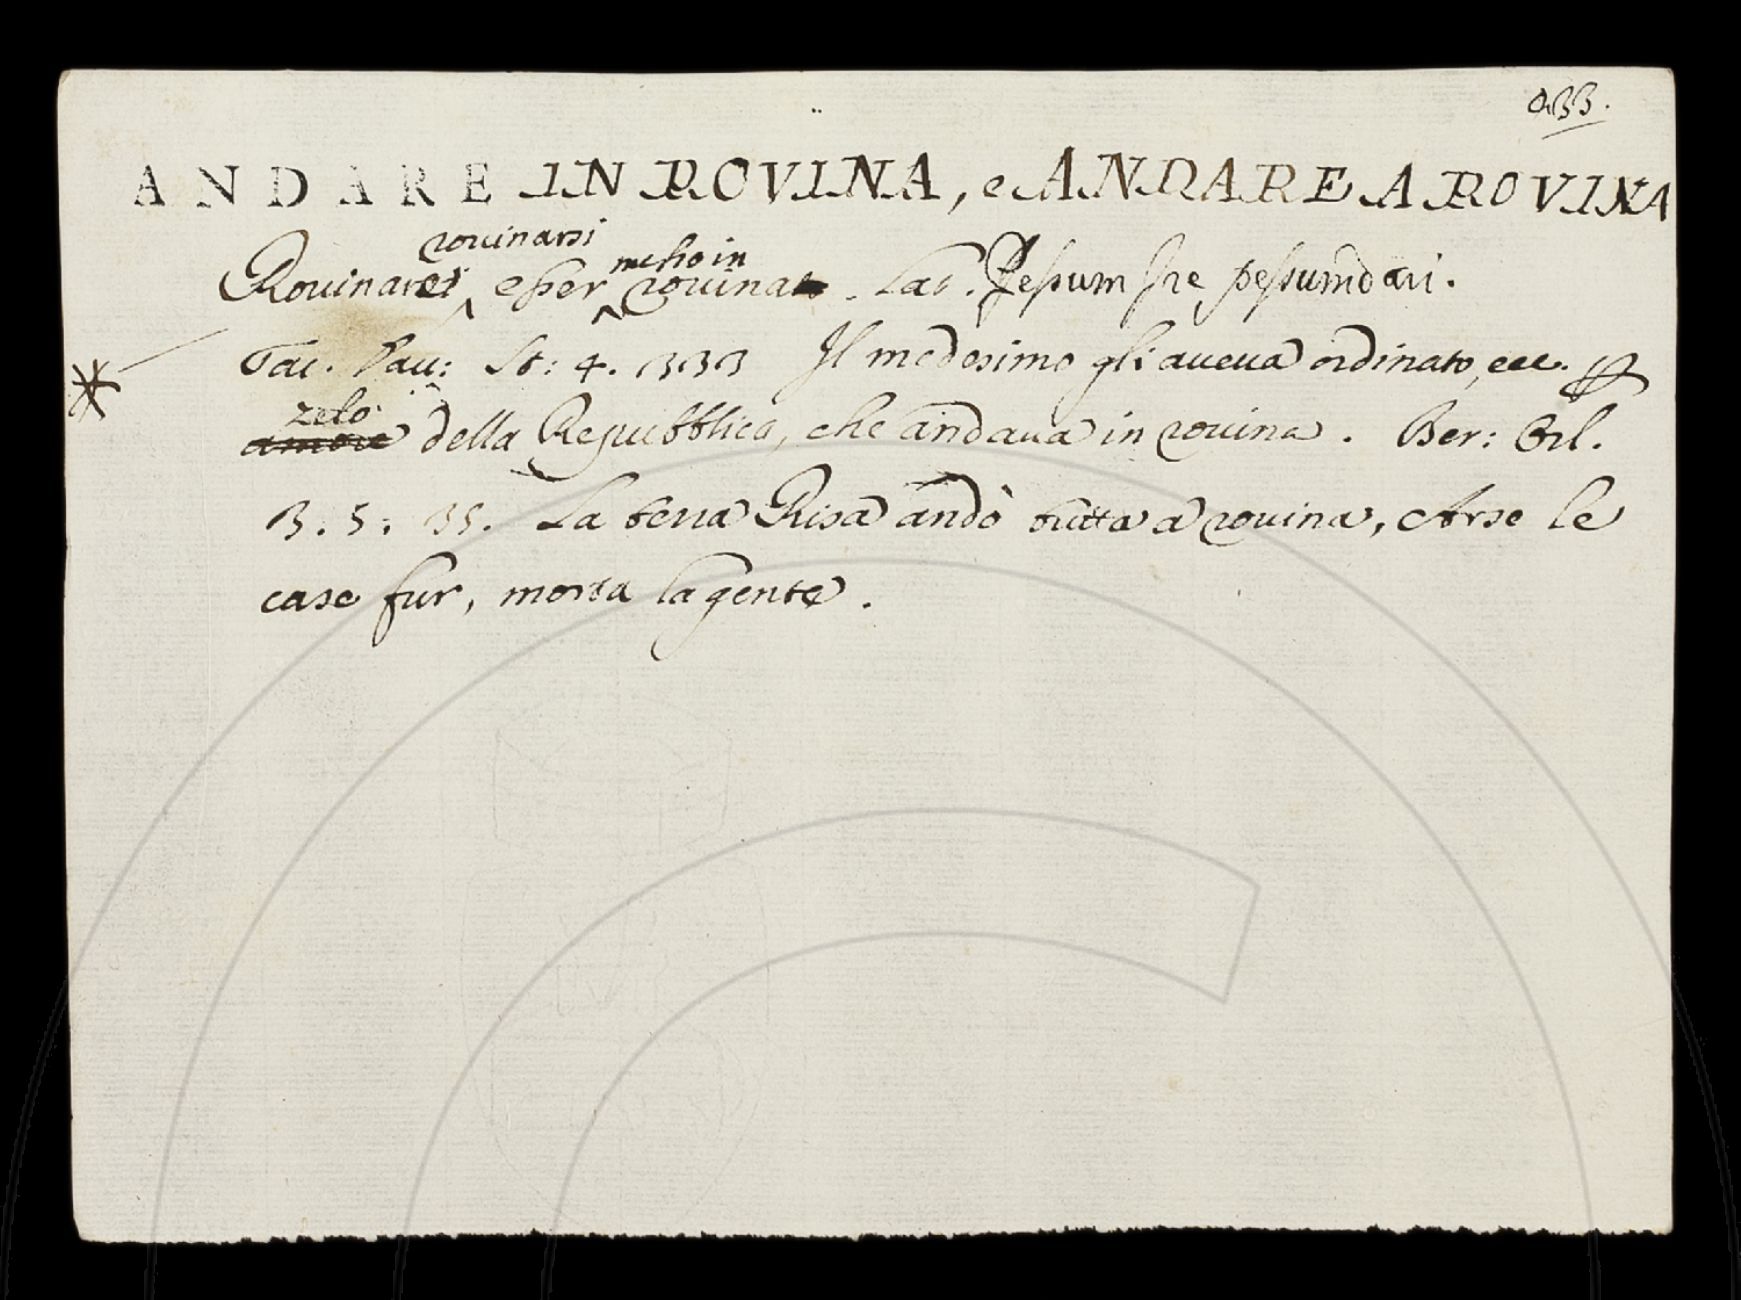 a33.
ANDARE IN ROVINA, e ANDARE A ROVINA
rovinarsi messo in
Rouinarsi esser rouina. Lat. Pessum Ire pessumdari.
Tac. Dau: St: 4. 333 Il medesimo gli aueua ordinato, ecc. p
zelo
amore della Repubblica, che andaua in rouina. Ber: Orl.
3. 5. 35. La terra Risa andò tutta a rouina, Arse le
case fur, morta la gente.